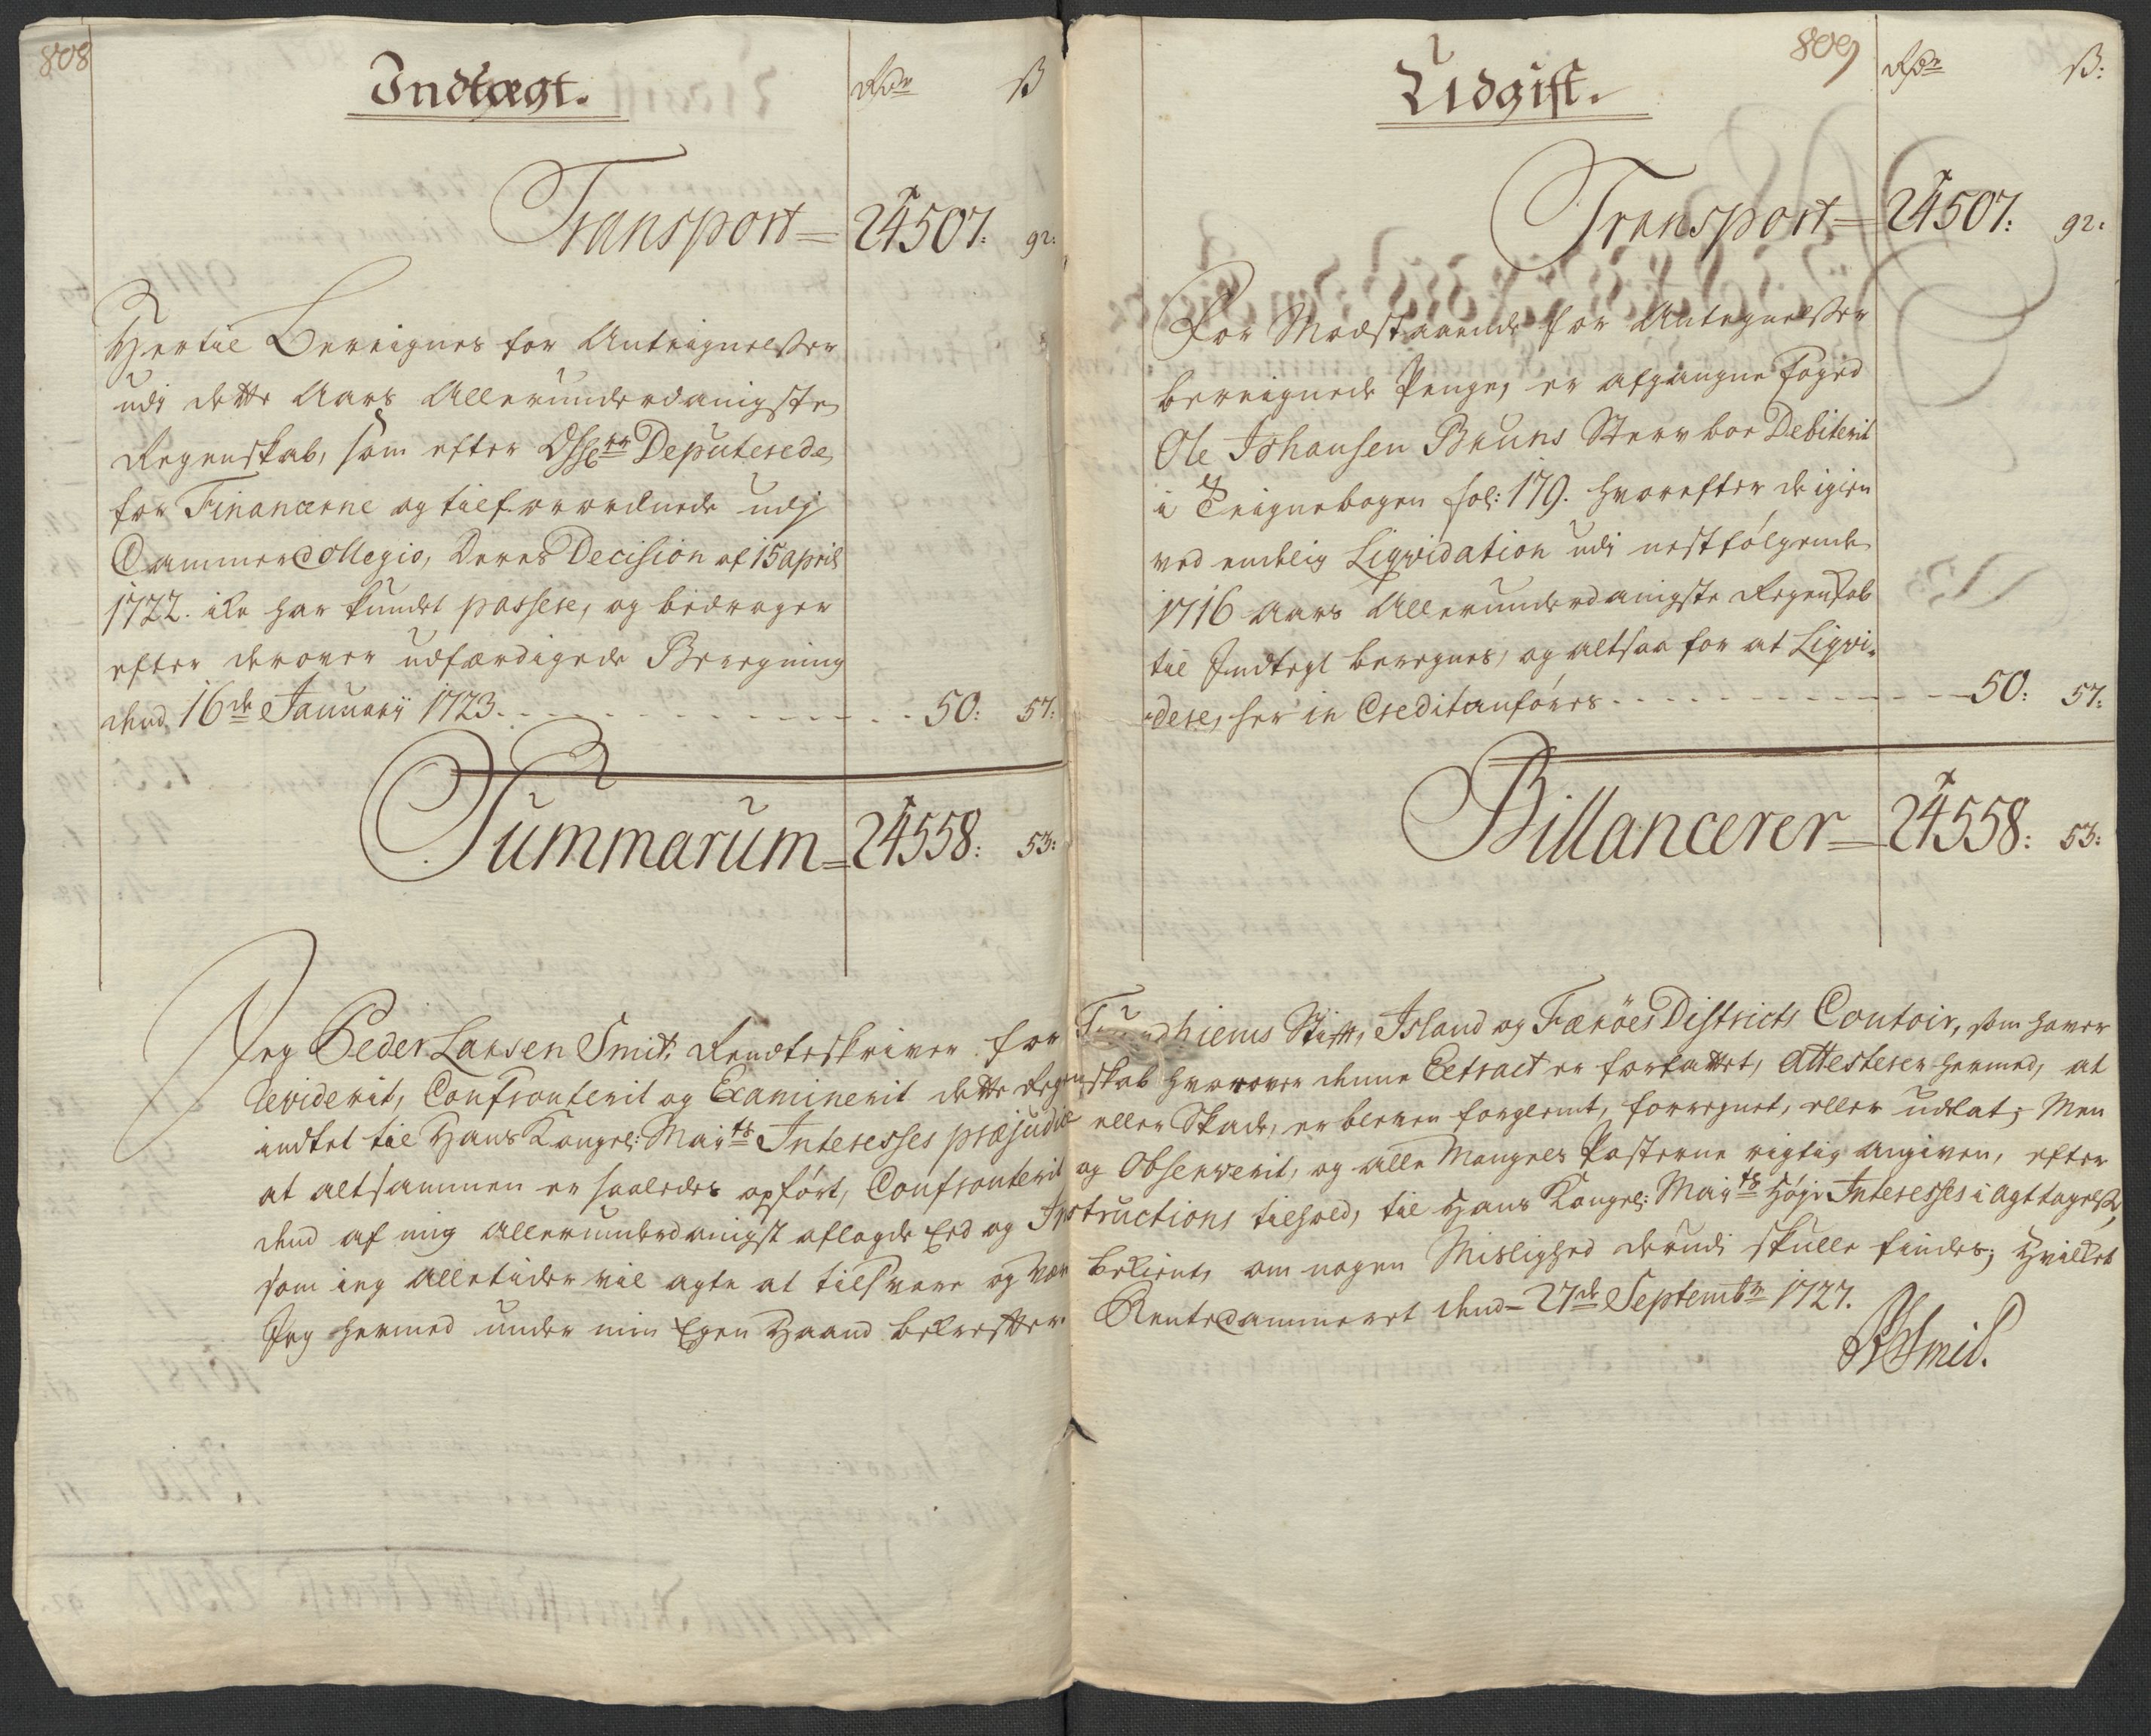 808
Indtægt.
Rdr ß
Transport = 24507: 92:
Hertil Bereignes for Anteignelßer
udi dette Aars Allerunderdanigste
Regenskab, som efter Deputerede
for Financerne og tilforordnede udj
Cammer Collegio, Deres Decision af 15 april
1722. ike har kundet passere, og bedrager
efter derover udfærdigede Beregning
dend 16de Januarij 1723. 50: 57:
Summarum = 24558: 53:
809
Udgift.
Rdr ß:
Transport = 24507: 92:
For Modstaaende for Antegnelßer
bereignede Penge, er afgangne Foged
Ole Johansen Bruns Sterboe Debiterit
i Teignebogen fol: 179. hvorefter de igien
ved endelig Liqvidation udi nestfølgende
1716 Aars Allerunderdanigste Regenskab
til Indtegt beregnes, og altsaa for at Liqvi-
dere, her in Credit anføres 50: 57:
Billancerer = 24558: 53:
Jeg Peder Larsen Smit, Rendteskriver for Trundhiems Stift, Island og Færöes Districts Contoir, som haver
Reviderit, Confronterit og Examinerit dette Regenskab hvorover denne Extract er forfattet, Attesterer hermed, at
indtet til Hans Kongel: Mayts Interesses præjudice eller Skade, er bleven forglemt, forregnet, eller udlat; Men
at altsammen er saaledes opført, Confronterit og Observerit, og alle Mangels Posterne rigtig angiven, efter
dend af mig allerunderdanigst aflagde Eed og Instructions tilhold, til Hans Kongel: Mayts høje Interesses i agttagelße,
som ieg alletider vil agte at tilsvare og være bekient, om nogen Mislighed derudi skulle findes; Hvilket
Jeg hermed under min Egen Haand bekrefter. Rentecammeret dend 27de Septembr 1727.
PSmit.